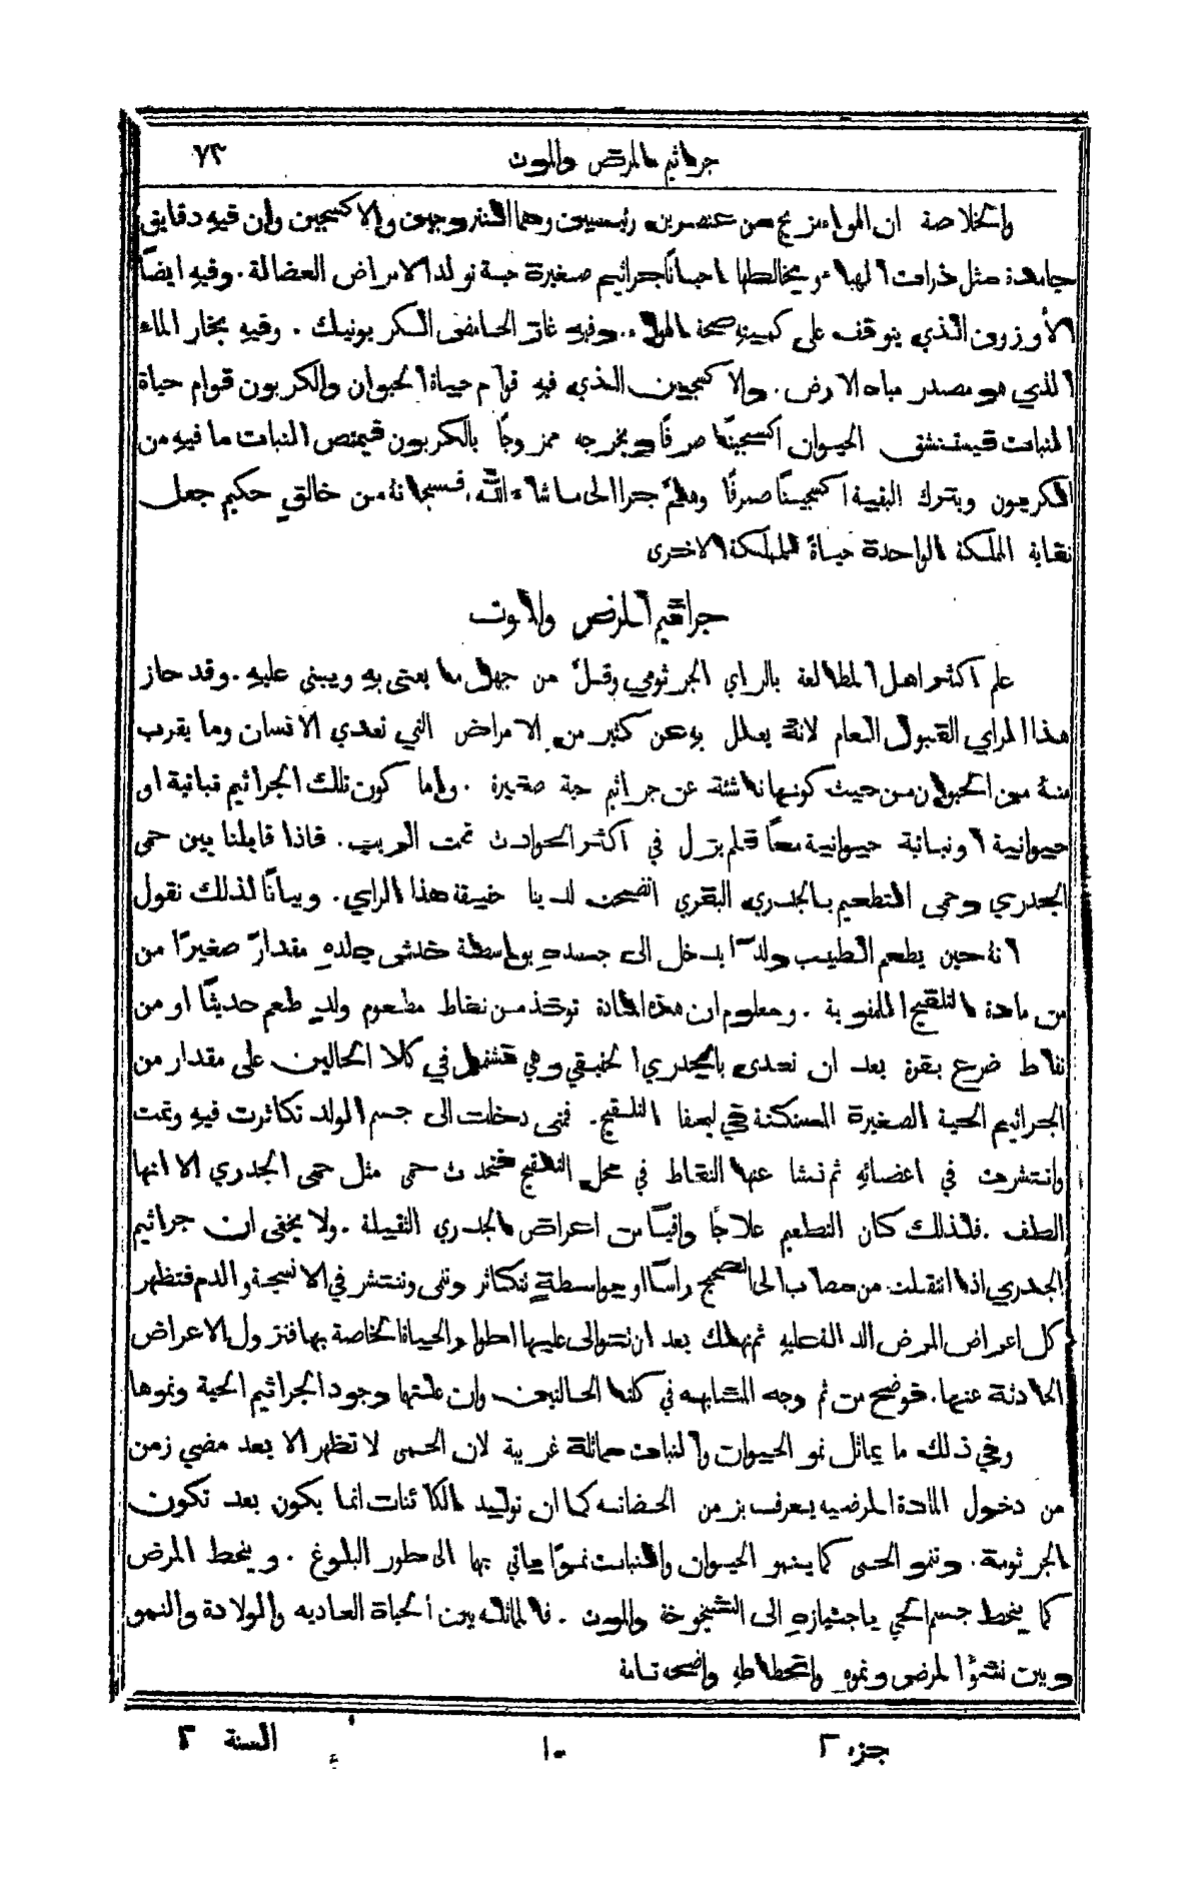 جراثيم المرض والموت ٧٣
والخلاصة ان الهواء مزيج من عنصرين رئيسيين وهما النتروجين والاكسجين وان فيهِ دقايق
جامدة مثل ذرات الهباء ويخالطها احيانًا جراثيم صغيرة حية تولد الامراض العضالة. وفيهِ ايضًا
الأوزون الذي يتوقف على كميتهِ صحة الهواء. وفيهِ غاز الحامض الكربونيك. وفيهِ بخار الماء
الذي هو مصدر مياه الارض. والاكسجين الذي فيهِ قوام حياة الحيوان والكربون قوام حياة
النبات فيستنشق الحيوان اكسجينًا صرفًا ويخرجه ممزوجًا بالكربون فيمتص النبات ما فيهِ من
الكربون ويترك البقية اكسجينًا صرفًا وهلمّ جرا الى ما شاء الله. فسبحانهُ من خالقٍ حكيم جعل
نفاية المملكة الواحدة حياةً للمملكة الاخرى
جراثيم المرض والموت
علم اكثر اهل المطالعة بالراي الجرثومي وقلَّ من جهل ما يعتى بهِ ويبنى عليهِ. وقد حاز
هذا الراي القبول العام لانهُ يعلل بهِ عن كثير من الامراض التي تعدي الانسان وما يقرب
منهُ من الحيوان من حيث كونها ناشئة عن جراثيم حية صغيرة. واما كون تلك الجراثيم نباتية او
حيوانية او نباتية حيوانية معًا فلم يزل في اكثر الحوادث تحت الريب. فاذا قابلنا بين حمى
الجدري وحمى التطعيم بالجدري البقري اتضحت لدينا حقيقة هذا الراي. وبيانًا لذلك نقول
انهُ حين يطعم الطبيب ولدًا يدخل الى جسدهِ بواسطة خدش جلدهِ مقدارً صغيرًا من
من مادة التلقيح اللمفوية. ومعلوم ان هذه المادة توخذ من نقاط مطعوم ولدٍ طعم حديثًا او من
نقاط ضرع بقرة بعد ان تعدى بالجدري الحقيقي وهي تشتمل في كلا الحالين على مقدار من
الجراثيم الحية الصغيرة المستكنة في لمفا التلقيح. فمتى دخلت الى جسم الولد تكاثرت فيهِ ونمت
وانتشرت في اعضائهِ ثم نشا عنها النقاط في محل التلقيح فتحدث حمى مثل حمى الجدري الا انها
الطف. فلذلك كان التطعيم علاجًا واقيًا من اعراض الجدري الثقيلة. ولا يخفى ان جراثيم
الجدري اذا انتقلت من مصاب الى الصحيح راسًا او بواسطةٍ تتكاثر وتنمى وتنتشر في الانسجة والدم فتظهر
كل اعراض المرض الدالة عليهِ ثم تهلك بعد ان تتوالى عليها اطوار الحياة الخاصة بها فتزول الاعراض
الحادثة عنها. فوضح من ثم وجه المشابهه في كلتا الحالتين وان علتها وجود الجراثيم الحية ونموها
وفي ذلك ما يماثل نمو الحيوان والنبات مماثلة غريبة لان الحمى لا تظهر الا بعد مضي زمن
من دخول المادة المرضيه يعرف بزمن الحضانه كما ان توليد الكائنات انما يكون بعد تكون
الجرثومة. وتنمو الحمى كما ينمو الحيوان والنبات نموًا ياتي بها الى طور البلوغ. وينحط المرض
كما ينحط جسم الحي باجتيازهِ الى الشيخوخة والموت. فالمماثله بين الحياة العاديه والولادة والنمو
وبين نشؤ المرض ونموهِ وانحطاطهِ واضحه تامة
جزء ٢ ١٠ السنة ٢